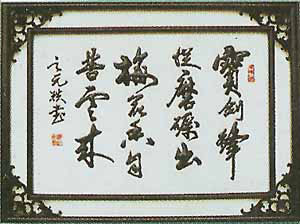 寶劍鋒
從磨礪出
梅花香自
苦寒来